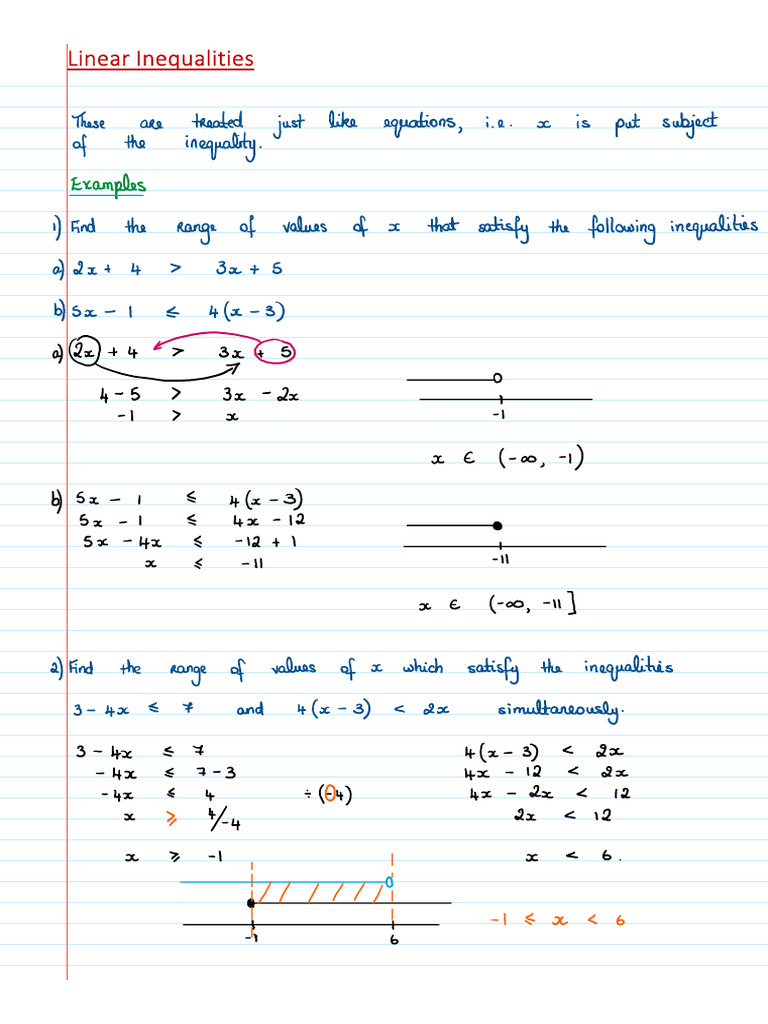 Linear Inequalities
These are treated just like equations, i.e. x is put subject
of the inequality.
Examples
1) Find the range of values of x that satisfy the following inequalities
a) 2x + 4 > 3x + 5
b) 5x - 1 ≤ 4(x - 3)
a) 2x + 4 > 3x + 5
4 - 5 > 3x - 2x
-1 > x
-1
x ∈ (-∞, -1)
b) 5x - 1 ≤ 4(x - 3)
5x - 1 ≤ 4x - 12
5x - 4x ≤ -12 + 1
x ≤ -11
-11
x ∈ (-∞, -11]
2) Find the range of values of x which satisfy the inequalities
3 - 4x ≤ 7 and 4(x - 3) < 2x simultaneously.
3 - 4x ≤ 7
- 4x ≤ 7 - 3
- 4x ≤ 4 ÷ (-4)
x ≥ 4/-4
x ≥ -1
4(x - 3) < 2x
4x - 12 < 2x
4x - 2x < 12
2x < 12
x < 6.
-1 6
-1 ≤ x < 6